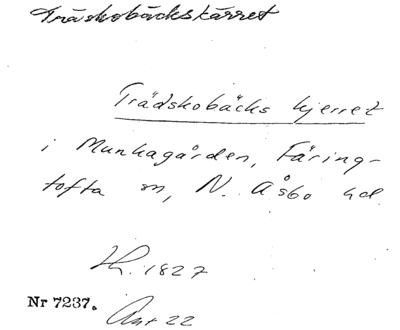 Träskobäckskärret
Trädskobäcks kjerret
i Munkagården, Färing-
tofta sn, N. Åsbo hd
Kh. 1827
Nr 7237.
Ant 22